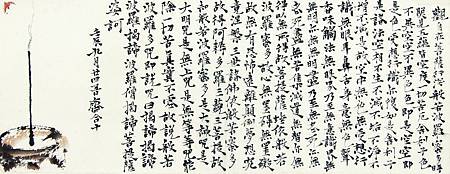 觀自在菩薩行深般若波羅蜜多時
照見五蘊皆空度一切苦厄舍利子色
不異空空不異色色即是空空即
是色受想行識亦復如是舍利子
是諸法空相不生不滅不垢不淨不
增不減是故空中無色無受想行
識無眼耳鼻舌身意無色聲
香味觸法無眼界乃至無意識界
無無明亦無無明盡乃至無老死
亦無老死盡無苦集滅道無智亦
無得以無所得故菩提薩埵依般若
波羅蜜多故心無罣礙無罣礙
故無有恐怖遠離顛倒夢想究
竟涅槃三世諸佛依般若波羅蜜多
故得阿耨多羅三藐三菩提故
知般若波羅蜜多是大神咒是
大明咒是無上咒是無等等咒能
除一切苦真實不虛故說般若
波羅蜜多咒即說咒曰揭諦揭諦
波羅揭諦波羅僧揭諦菩提薩
婆訶
九月廿四